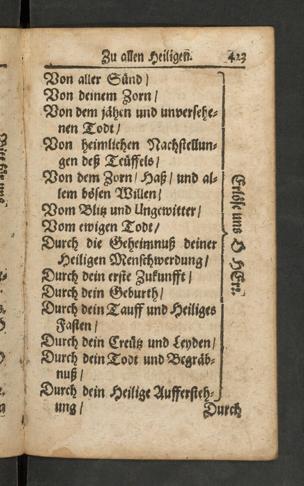 Zu allen Heiligen. 423
Von aller Sünd/
Von deinem Zorn/
Von dem jähen und unversehe-
nen Todt/
Von heimlichen Nachstellun-
gen deß Teüffels/
Von dem Zorn/ Haß/ und al-
lem bösen Willen/
Vom Blitz und Ungewitter/
Vom ewigen Todt/
Durch die Geheimnuß deiner
Heiligen Menschwerdung/
Durch dein erste Zukunfft/
Durch dein Geburth/
Durch dein Tauff und Heiliges
Fasten/
Durch dein Creütz und Leyden/
Durch dein Todt und Begräb-
nuß/
Durch dein Heilige Auffersteh-
ung/
Erlöse uns O HErr.
Durch